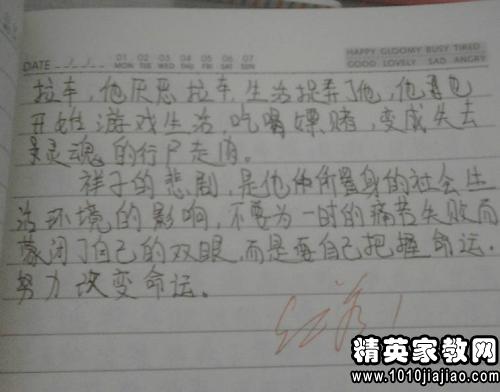 DATE / /
01 02 03 04 05 06 07
MON TUE WED THU FRI SAT SUN
HAPPY GLOOMY BUSY TIRED
GOOD LOVELY SAD ANGRY
拉车,他厌恶拉车,生活捉弄了他,他也
开始游戏生活,吃喝嫖赌,变成失去
灵魂的行尸走肉。
祥子的悲剧,是他所置身的社会生
活环境的影响,不要为一时的痛苦失败而
蒙闭了自己的双眼,而是要自己把握命运。
努力改变命运。
精英家教网
www.1010jiajiao.com